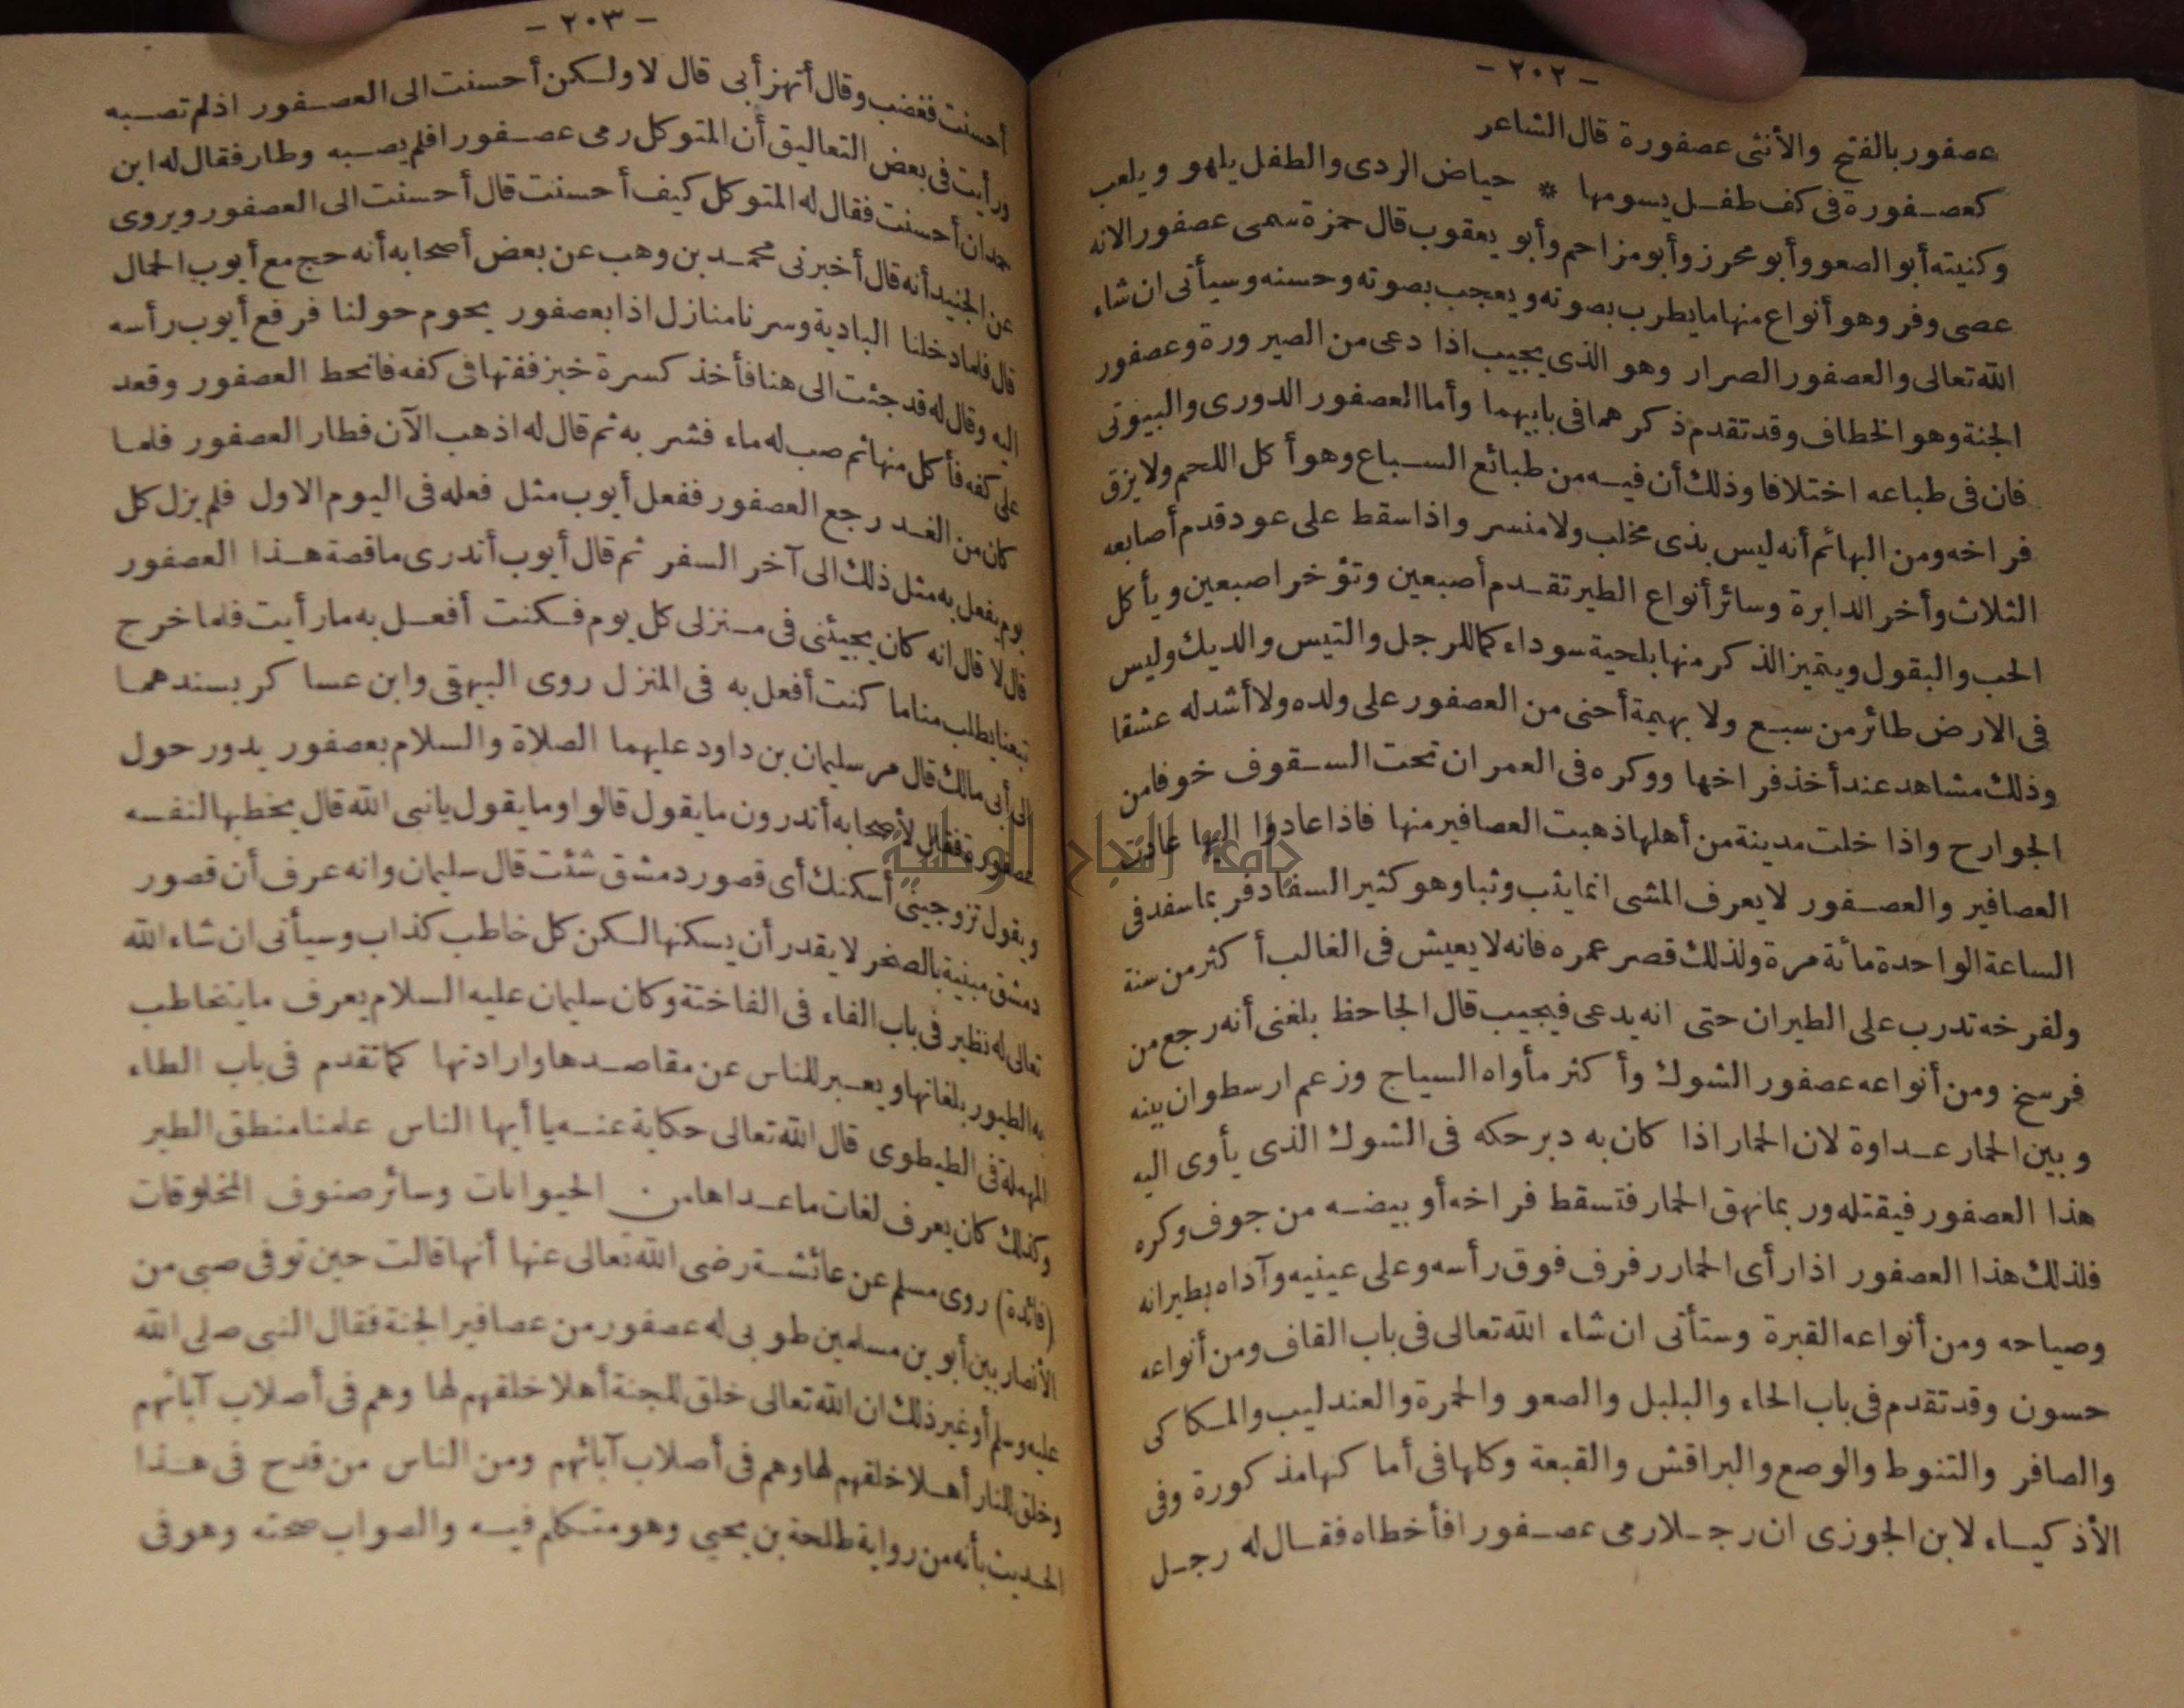 - ٢٠٢ -
عصفور بالفتح والأنثى عصفورة قال الشاعر
كعصفورة فى كف طفل يسومها * حياض الردى والطفل يلهو ويلعب
وكنيته أبو الصعو وأبو محرز وأبو مزاحم وأبو يعقوب قال حمزة سمى عصفورا لانه
عصى وفر وهو أنواع منها ما يطرب بصوته ويعجب بصوته وحسنه وسيأتى ان شاء
الله تعالى والعصفور الصرار وهو الذى يجيب اذا دعى من الصيرورة وعصفور
الجنة وهو الخطاف وقد تقدم ذكرهما فى بابيهما وأما العصفور الدورى والبيوتى
فان فى طباعه اختلافا وذلك أن فيه من طبائع السباع وهو أكل اللحم ولا يزق
فراخه ومن البهائم أنه ليس بذى مخلب ولا منسر واذا سقط على عود قدم أصابعه
الثلاث وأخر الدابرة وسائر أنواع الطير تقدم أصبعين وتؤخر اصبعين ويأكل
الحب والبقول ويتميز الذكر منها بلحية سوداء كما للرجل والتيس والديك وليس
فى الارض طائر من سبع ولا بهيمة أحنى من العصفور على ولده ولا أشد له عشقا
وذلك مشاهد عند أخذ فراخها ووكره فى العمران تحت السقوف خوفا من
الجوارح واذا خلت مدينة من أهلها ذهبت العصافير منها فاذا عادوا اليها عادت
العصافير والعصفور لا يعرف المشى انما يثب وثبا وهو كثير السفاد فربما سفد فى
الساعة الواحدة مائة مرة ولذلك قصر عمره فانه لا يعيش فى الغالب أكثر من سنة
ولفرخه تدرب على الطيران حتى انه يدعى فيجيب قال الجاحظ بلغنى أنه رجع من
فرسخ ومن أنواعه عصفور الشوك وأكثر مأواه السياج وزعم ارسطو ان بينه
وبين الحمار عداوة لان الحمار اذا كان به دبر حكه فى الشوك الذى يأوى اليه
هذا العصفور فيقتله وربما نهق الحمار فتسقط فراخه أو بيضه من جوف وكره
فلذلك هذا العصفور اذا رأى الحمار رفرف فوق رأسه وعلى عينيه وآذاه بطيرانه
وصياحه ومن أنواعه القبرة وستأتى ان شاء الله تعالى فى باب القاف ومن أنواعه
حسون وقد تقدم فى باب الحاء والبلبل والصعو والحمرة والعندليب والمكاكى
والصافر والتنوط والوصع والبراقش والقبعة وكلها فى أماكنها مذكورة وفى
الأذكياء لابن الجوزى ان رجلا رمى عصفورا فأخطاه فقال له رجل
- ٢٠٣ -
أحسنت فغضب وقال أتهزأ بى قال لا ولكن أحسنت الى العصفور اذ لم تصبه
ورأيت فى بعض التعاليق أن المتوكل رمى عصفورا فلم يصبه وطار فقال له ابن
حمدان أحسنت فقال له المتوكل كيف أحسنت قال أحسنت الى العصفور ويروى
عن الجنيد أنه قال أخبرنى محمد بن وهب عن بعض أصحابه أنه حج مع أيوب الحمال
قال فلما دخلنا البادية وسرنا منازل اذا بعصفور يحوم حولنا فرفع أيوب رأسه
اليه وقال له قد جئت الى هنا فأخذ كسرة خبز ففتها فى كفه فانحط العصفور وقعد
على كفه فأكل منها ثم صب له ماء فشربه ثم قال له اذهب الآن فطار العصفور فلما
كان من الغد رجع العصفور ففعل أيوب مثل فعله فى اليوم الاول فلم يزل كل
يوم يفعل به مثل ذلك الى آخر السفر ثم قال أيوب أتدرى ما قصة هذا العصفور
قال لا قال انه كان يجيئنى فى منزلى كل يوم فكنت أفعل به ما رأيت فلما خرج
تبعنا يطلب منا ما كنت أفعل به فى المنزل روى البيهقى وابن عساكر بسندهما
الى أبى مالك قال مر سليمان بن داود عليهما الصلاة والسلام بعصفور يدور حول
عصفورة فقال لأصحابه أتدرون ما يقول قالوا وما يقول يا نبى الله قال يخطبها لنفسه
ويقول تزوجينى أسكنك أى قصور دمشق شئت قال سليمان وانه عرف أن قصور
دمشق مبنية بالصخر لا يقدر أن يسكنها لكن كل خاطب كذاب وسيأتى ان شاء الله
تعالى له نظير فى باب الفاء فى الفاختة وكان سليمان عليه السلام يعرف ما يتخاطب
به الطيور بلغاتها ويعبر للناس عن مقاصدها واراداتها كما تقدم فى باب الطاء
المهملة فى الطيطوى قال الله تعالى حكاية عنه يا أيها الناس علمنا منطق الطير
وكذلك كان يعرف لغات ما عداها من الحيوانات وسائر صنوف المخلوقات
(فائدة) روى مسلم عن عائشة رضى الله تعالى عنها أنها قالت حين توفى صبى من
الأنصار بين أبوين مسلمين طوبى له عصفور من عصافير الجنة فقال النبى صلى الله
عليه وسلم أو غير ذلك ان الله تعالى خلق للجنة أهلا خلقهم لها وهم فى أصلاب آبائهم
وخلق للنار أهلا خلقهم لها وهم فى أصلاب آبائهم ومن الناس من قدح فى هذا
الحديث بأنه من رواية طلحة بن يحيى وهو متكلم فيه والصواب صحته وهو فى
جامعة النجاح الوطنية